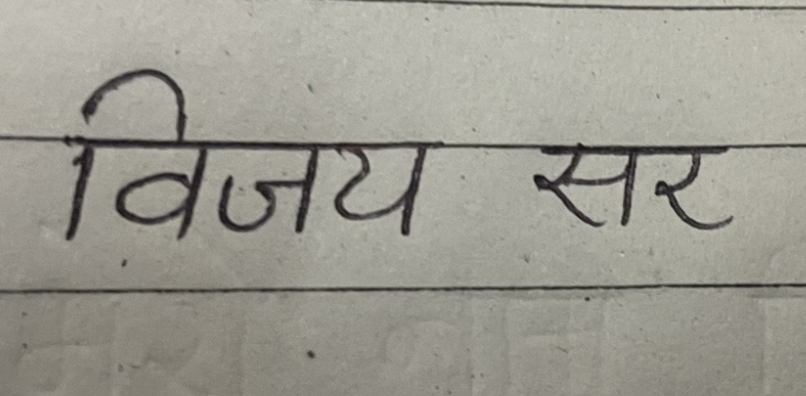 विजय सर